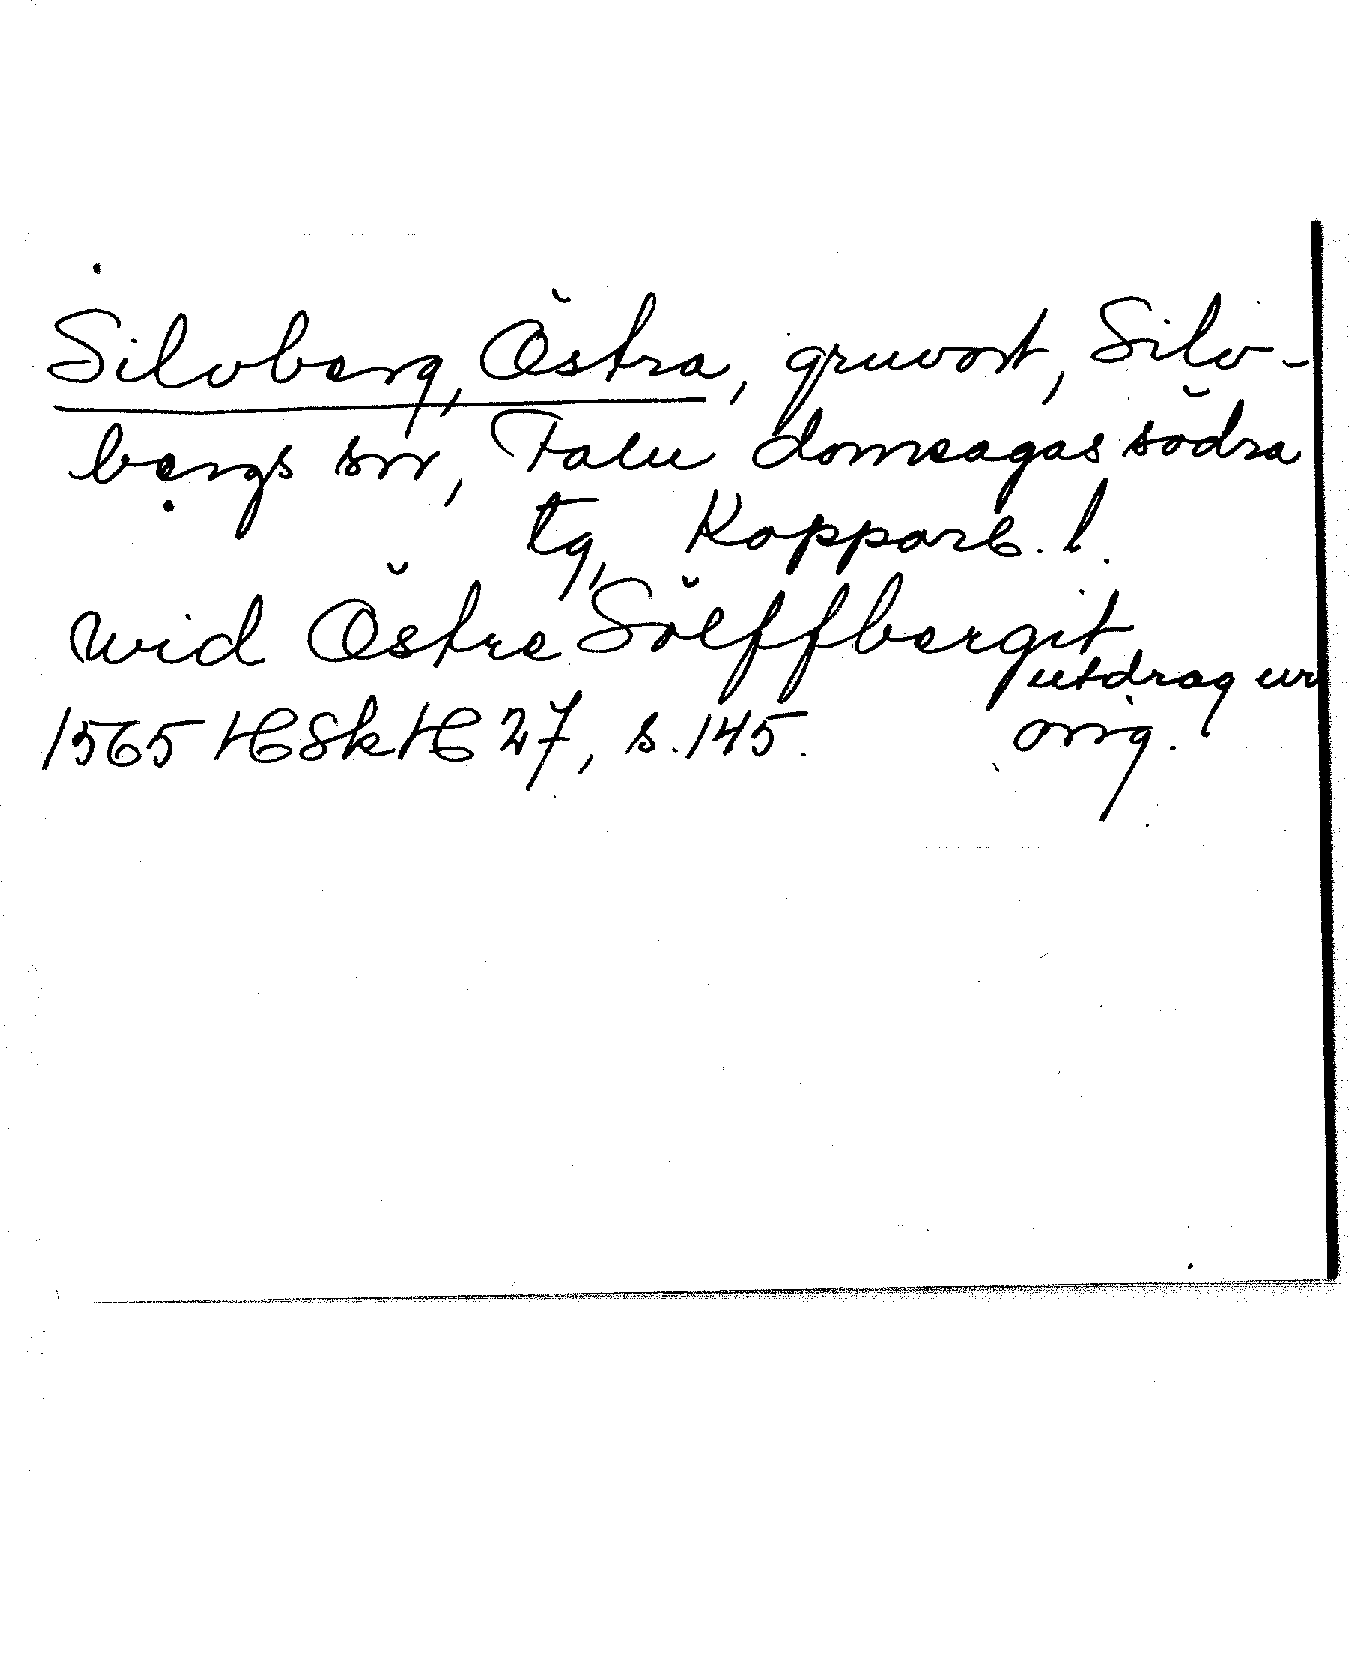 Silvberg, Östra, gruvort, Silv-
bergs sn, Falu domsagas södra
tg, Kopparb. l.
wid Östre Sölffbergit
utdrag ur
1565 HSkH 27, s. 145. orig.